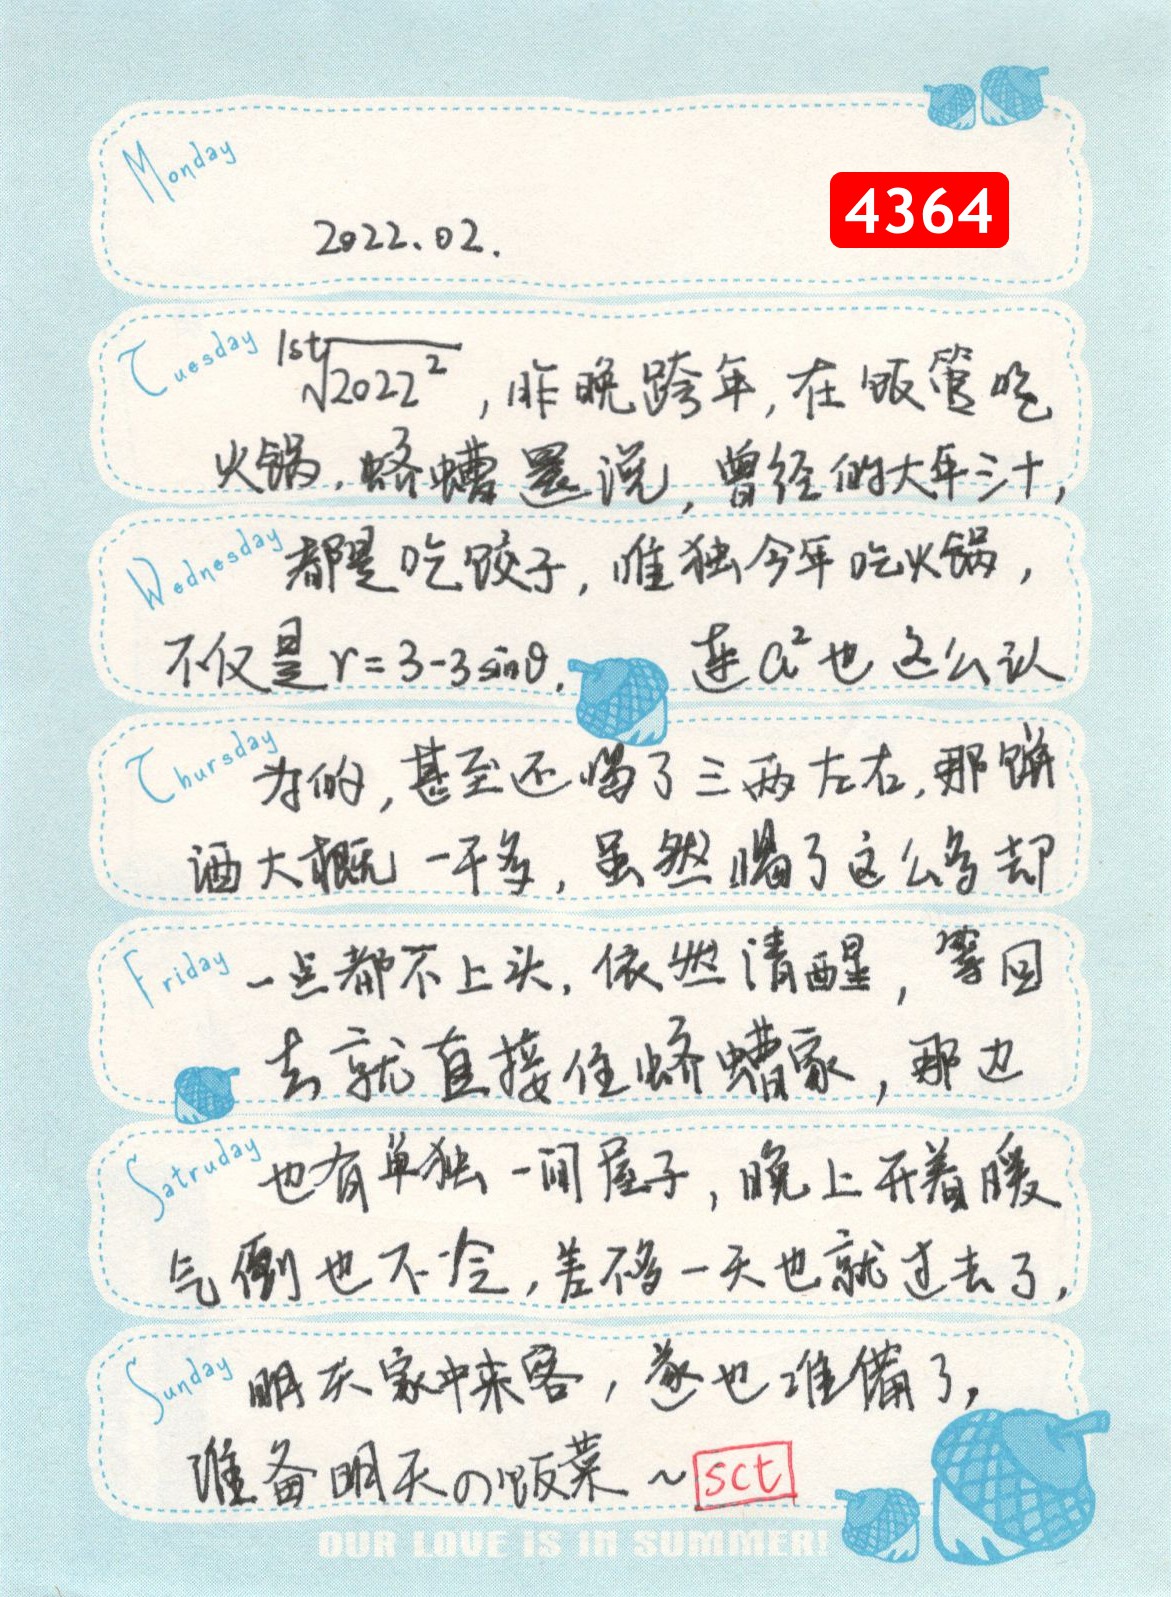 4364
Monday
2022.02.
Tuesday
1st √2022², 昨晚跨年,在饭管吃
火锅,蛴螬還说,曾经的大年三十,
Wednesday
都是吃饺子,唯独今年吃火锅,
不仅是r=3-3sinθ. 连a²也这么认
Thursday
为的,甚至还喝了三两左右,那餅
酒大概一千多,虽然喝了这么多却
Friday
一点都不上头,依然清醒,等回
去就直接住蛴螬家,那边
Satruday
也有单独一间屋子,晚上开着暖
气倒也不冷,差不多一天也就过去了,
Sunday
明天家中来客,遂也准備了,
准备明天の饭菜～sct
OUR LOVE IS IN SUMMER!